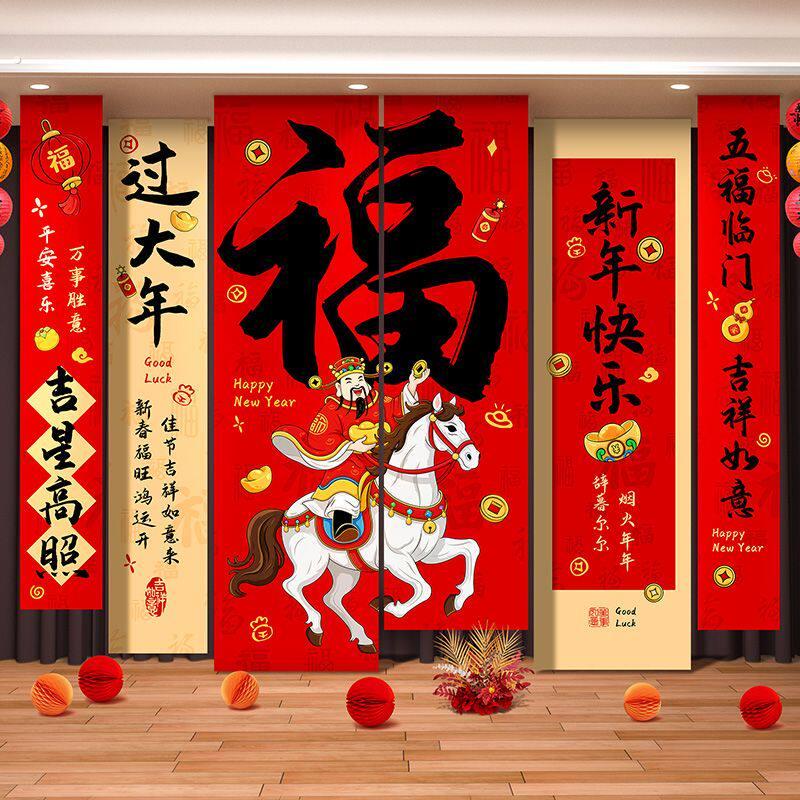 福
万事胜意
平安喜乐
吉星高照
过大年
Good
Luck
佳节吉祥如意来
新春福旺鸿运开
吉祥如意
福
Happy
New Year
新年快乐
烟火年年
辞暮尔尔
Good
Luck
五福临门
吉祥如意
Happy
New Year